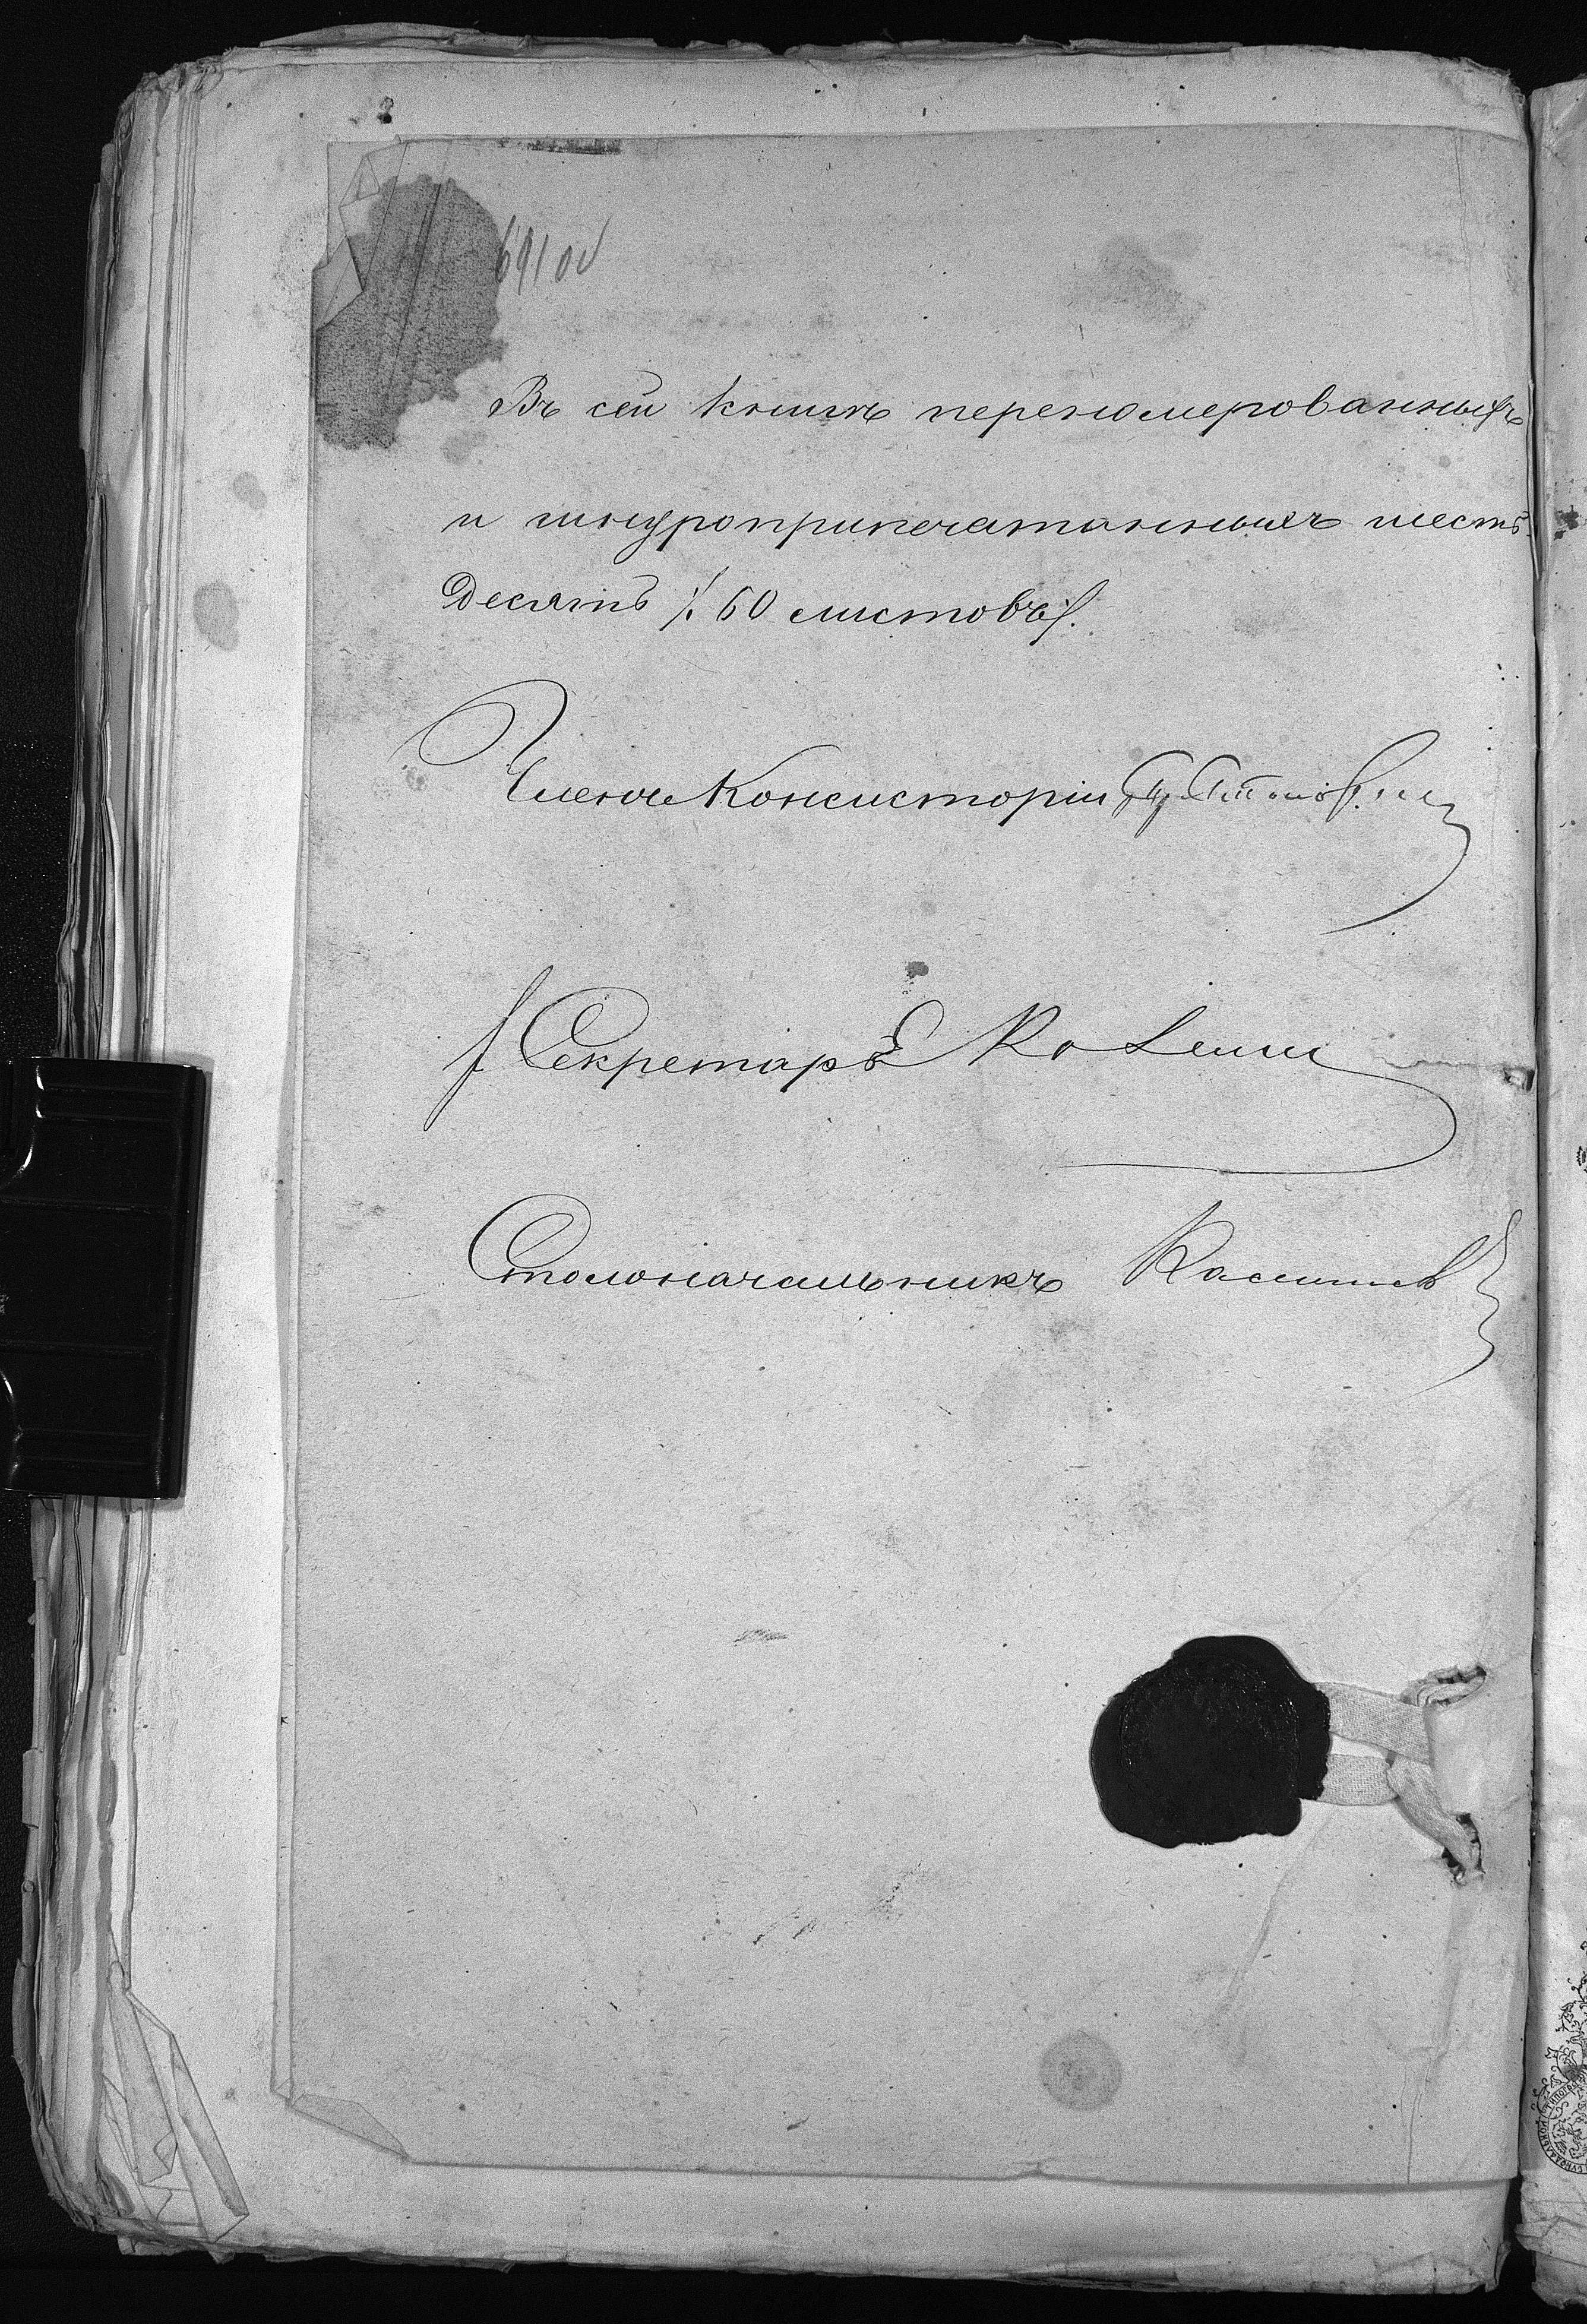 691 об
Въ сей книгѣ перенумерованныхъ
и шнуроприпечатанныхъ шесть-
десятъ /: 60 листовъ :/.
Членъ Консисторіи
Секретарь
Столоначальникъ